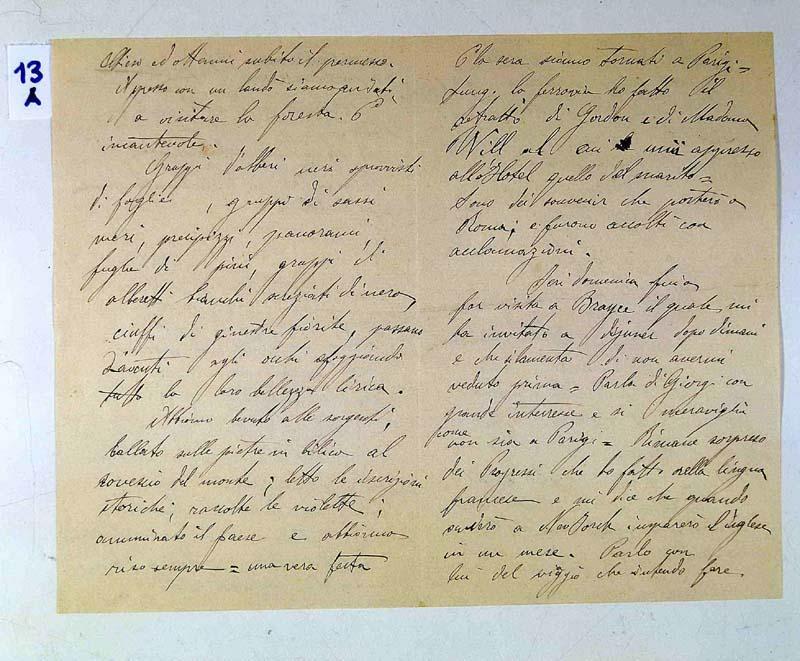 13
A
ed ottenni subito il permesso.
Appresso con un landò siamo andati
a visitare la foresta. È
incantevole.
Gruppi d'alberi neri sprovvisti
di foglie, gruppi di sassi
neri, precipizi, panorami
fughe di pini, gruppi di
alberetti bianchi screziati di nero,
ciuffi di ginestre fiorite, passano
davanti agli occhi sfoggiando
tutta la loro bellezza lirica.
Abbiamo bevuto alle sorgenti,
ballato sulle pietre in bilico al
rovescio del monte; letto le iscrizioni
storiche; raccolte le violette;
ammirato il paese e abbiamo
riso sempre = una vera festa
E la sera siamo tornati a Parigi =
Lung. la ferrovia ho fatto il
ritratto di Gordon e di Madama
Will al cui unii appresso
all'Hotel quello del marito =
Sono dei souvenir che porterò a
Roma; e furono accolti con
acclamazioni.
Ieri domenica fui a
far visita a il quale mi
ha invitato a dijuner dopo dimani
e che si lamenta di non avermi
veduto prima = Parla di Giorgi con
grande interesse e si meraviglia
come
non sia a Parigi = Rimane sorpreso
dei Progressi che ho fatto nella lingua
francese e mi dice che quando
andrò a imparerò l'inglese
in un mese. Parlo con
lui del viaggio che intendo fare